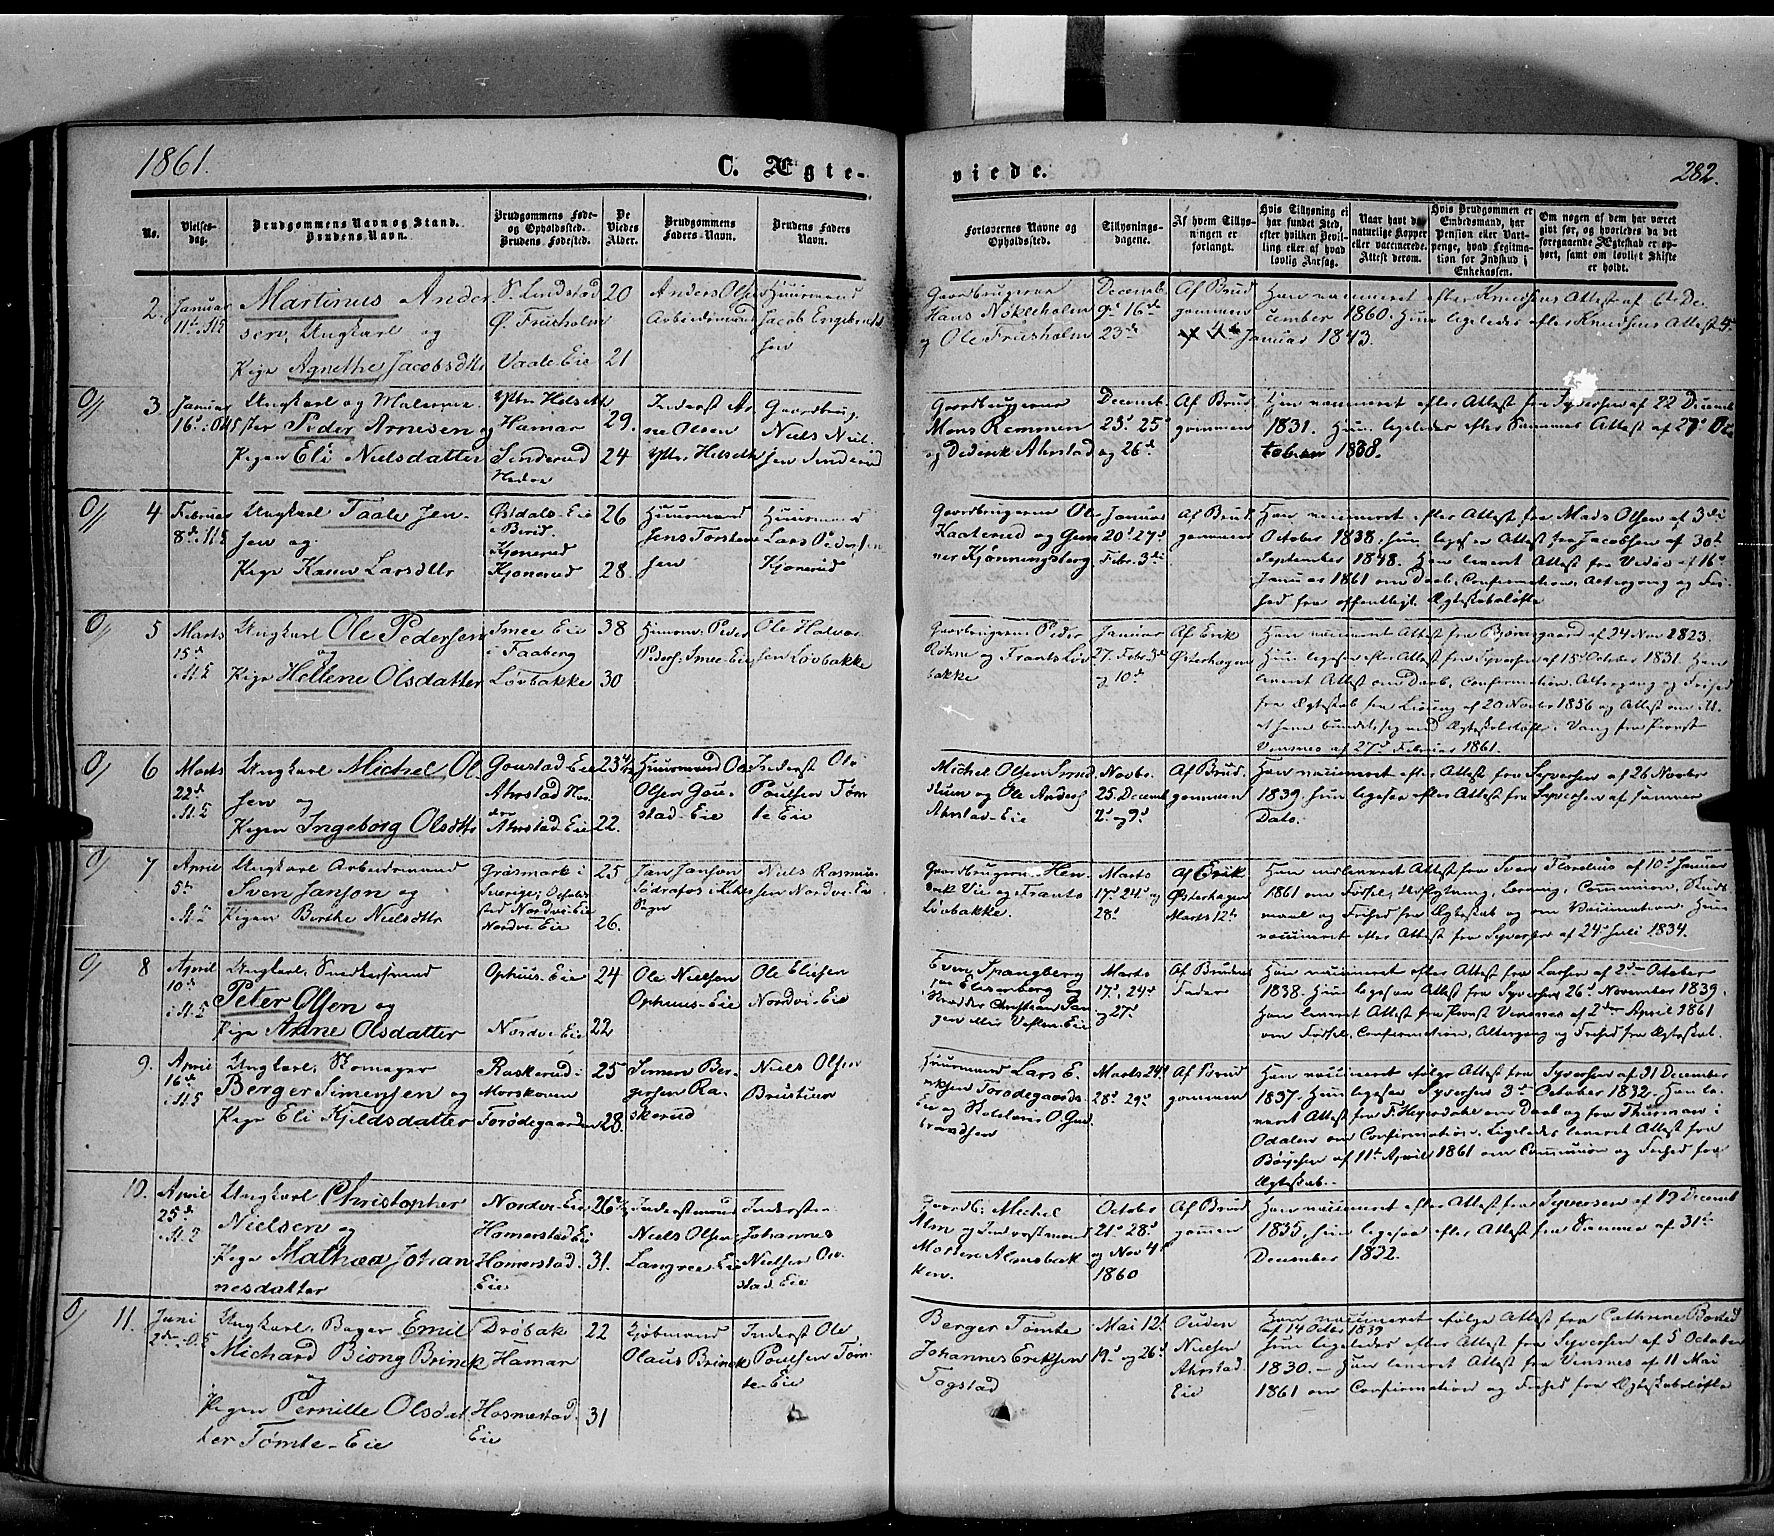 1861.
C. Ægte-
viede.
282.
No.
Vielses-
dag.
Brudgommens Navn og Stand.
Brudens Navn.
Brudgommens Føde-
og Opholdssted.
Brudens Fødested.
De
Viedes
Alder.
Brudgommens
Faders-Navn.
Brudens Faders
Navn.
Forlovernes Navne og
Opholdssted.
Tillysnings-
dagene.
Af hvem Tillys-
ningen er
forlangt.
Hvis Tillysning ei
har fundet Sted,
efter hvilken Bevil-
ling eller af hvad
lovlig Aarsag.
Naar havt de
naturlige Kopper
eller vaccinerede.
Attest derom.
Hvis Brudgommen er
Embedsmand, har
Pension eller Vart-
penge, hvad Legitima-
tion for Indskud i
Enkekassen.
Om nogen af dem har været
gift før, og hvorledes da det
foregaaende Ægteskab er op-
hørt, samt om lovligt Skifte
er holdt.
2.
Januar
Martinus Ander
sen, Ungkarl og
Pige Agnethe Jacobsdtr
S. Lindstad
Ø. Frusholm
Vaale Eie
20
21
Anders Olsen
Arbeidsmand
Huusmand
Jacob Engebretsen
Gaardbrugerne
Hans Nökleholm
og Ole Frusholm
Decemb
9d 16de
23de
Af Brud
gommen
Han vaccineret efter Knudsens Attest af 6te De
cember 1860. Hun ligeledes efter Knudsens Attest
Januar 1843.
3.
Januar
Ungkarl og Malerme
ster Peder Arnesen og
Pigen Eli Nielsdatter
Ytre Helset
Hamar
Sinderud
29.
24
Inderst Ar
ne Olsen
Ytre Helset
Gaardbrug.
Niels Niel
sen Sinderud
Gaardbrugerne
Mons Remmen
og Diderik Ahrstad
Decemb
23d 25d
og 26de
Af Brud
gommen
Han vaccineret efter Attest af Syversen af 22 Decemb
1831. Hun ligeledes efter Attest af
tober 1838.
4
Februar
Ungkarl Taale Jen
sen og
Pige Karen Larsdtr
Østdals Eie
i Birid
Kjonerud
Kjonerud
26
28.
Huusmand
Jens Torsten
sen
Huusmand
Lars Peder sen
Kjonerud
Gaardbrugerne Ole
Kaaterud og Gun
ner Kjønningsberg
Januar
20d 27de
Febr. 3die
Af Brud
gommen
Han vaccineret efter Attest fra Mads Olsen af 3die
October 1838. Hun ligesaa efter Attest fra Jacobsen af 30te
September 1848. Han leveret Attest fra Birid af 16de
Januar 1861 om Daab, Confirmation, Altergang og Fri-
hed fra offentligt Ægteskabsløfte
5
Marts
15de
Ungkarl Ole Pedersen
og
Pige Hellene Olsdatter
Smee Eie
i Faaberg
Løvbakke
38
30
Huusm. Peder
Peders. Smee-Eie
Ole Halvor
sen Løvbakke
Gaardbrugerne Peder
Röhne og Frants Løv
bakke
Januar
27. Febr. 3die
og 10de
Af Erik
Østerhagen
Han vaccineret Attest fra Bjørnsgaard af 24 Nov 1823.
Hun ligesaa efter Attest fra Syversen af 15d October 1831. Han
leveret Attest om Daab, Confirmation, Altergang og Frihed
fra Ægteskab fra af 20 Novbr 1856 og Attest om
Vang fra Provst
Vensnes af 27d Februar 1861.
6
Marts
22de
Ungkarl Michel Ol
sen og
Pigen Ingeborg Olsdtr
Goustad Eie
Ahrstad
Ahrstad-Eie
23 1/2
22.
Huusmand Ole
Olsen Gou-
stad-Eie
Inderst Ole
Poulsen Töm
te Eie
Michel Olsen
og Ole Anders
Ahrstad-Eie
Novbr.
25. Decemb
2d og 9d
Af Brud
gommen
Han vaccineret efter Attest fra Syversen af 26 Novbr
1839. Hun ligesaa efter Attest fra Syversen af samme
Dato.
7
April
5te
Ungkarl Arbeidsmand
Sven Janson og
Pigen Berthe Nielsdtr
Gräsmark i
Sverige; Opholds
sted Nordvi-Eie
Nordvi-Eie
25
26.
Jan Janson
Niels Rasmus
sen Nordvi-Eie
Gaardbrugerne Hen
rik Vie og Frants
Løvbakke.
Marts
17d 24d og
28d
Af Erik
Østerhagen
Marts 12te
Han indleveret Attest fra Sven Florelius af 10d Januar
1861 om Fødsel, Communion
og Frihed fra Ægteskab og om Vaccination. Hun
vaccineret efter Attest fra Syversen af 24d Juli 1834.
8
April
10de
Ungkarl, Snedkersvend
Peter Olsen og
Pige Anne Olsdatter
Ophuus-Eie
Nordvi-Eie
24
22
Ole Nielsen
Ophuus-Eie
Ole Eliesen
Nordvi-Eie
Even Spangberg
paa Elisenberg og
Christian
Marts
17d, 24d
og 27d
Af Brudens
Fader
Han vaccineret efter Attest fra Larsen af 2den October
1838. Hun ligesaa efter Attest fra Syversen 26d November 1839.
Han leveret Attest fra Provst Vensnes af 2den April 1861
om Fødsel, Confirmation, Altergang og Frihed fra Ægteskab.
9.
April
16de
Ungkarl, Skomager
Berger Simensen og
Pige Eli Kjeldsdatter
Raskerud
Morskoven
Torödegaarden
25
28.
Simen Ber
gersen Ra-
skerud
Niels Olsen
Brustuen
Huusmand Lars E
riksen Torödegaards
Eie og O. Gul
brandsen
Marts 24d
28d 29d
Af Brud
gommen
Han vaccineret ifølge Attest fra Syversen af 31 December
1837. Hun ligesaa Syversen 3d October 1832. Han le-
veret Attest fra om Daab og fra Thurman i
Odalen om Confirmation. Ligeledes leveret Attest fra
Böysen af 11te April 1861 om Communion og Frihed fra
Ægteskab.
10.
April
25de
Ungkarl Christopher
Nielsen og
Pige Mathea Johan
nesdatter
Nordvi-Eie
Homerstad Eie
Homerstad-
Eie
26 1/2
31.
Inderstmand
Niels Olsen
Langvee Eie
Inderst
Johannes
Nielsen
stad-Eie
Gaardb. Michel
Alm og Inderstmand
Morten Almsbak
ken.
Octobr
21d 28d
og Nov 4d
1860
Af Brud
gommen
Han vaccineret efter Attest fra Syversen af 19 Decemb
1835, Hun ligesaa efter Attest fra Stammer af 31te
December 1832.
11.
Juni
Ungkarl, Bager Emil
Michard Biong Brinck
og
Pigen Pernille Olsdat
ter Tømte-Eie
Drøbak
Hamar
Hosmestad
Eie
22
31
Kjøbmand
Olaus Brinck
Inderst Ole
Poulsen Töm
te-Eie
Berger Tömte
Johannes Eriksen
Togstad
Mai 12d
19d og 26d
Ouden
Nielsen
Ahrstad
Eie
Han vaccineret ifølge Attest fra Cathrine Bosted
af 14 Octbr 1839
Hun ligeledes efter Attest fra Syversen af 5 October
1830. – Hun leveret Attest fra Vensnes af 11 Mai
1861 om Confirmation og Frihed fra Ægteskabsløfte